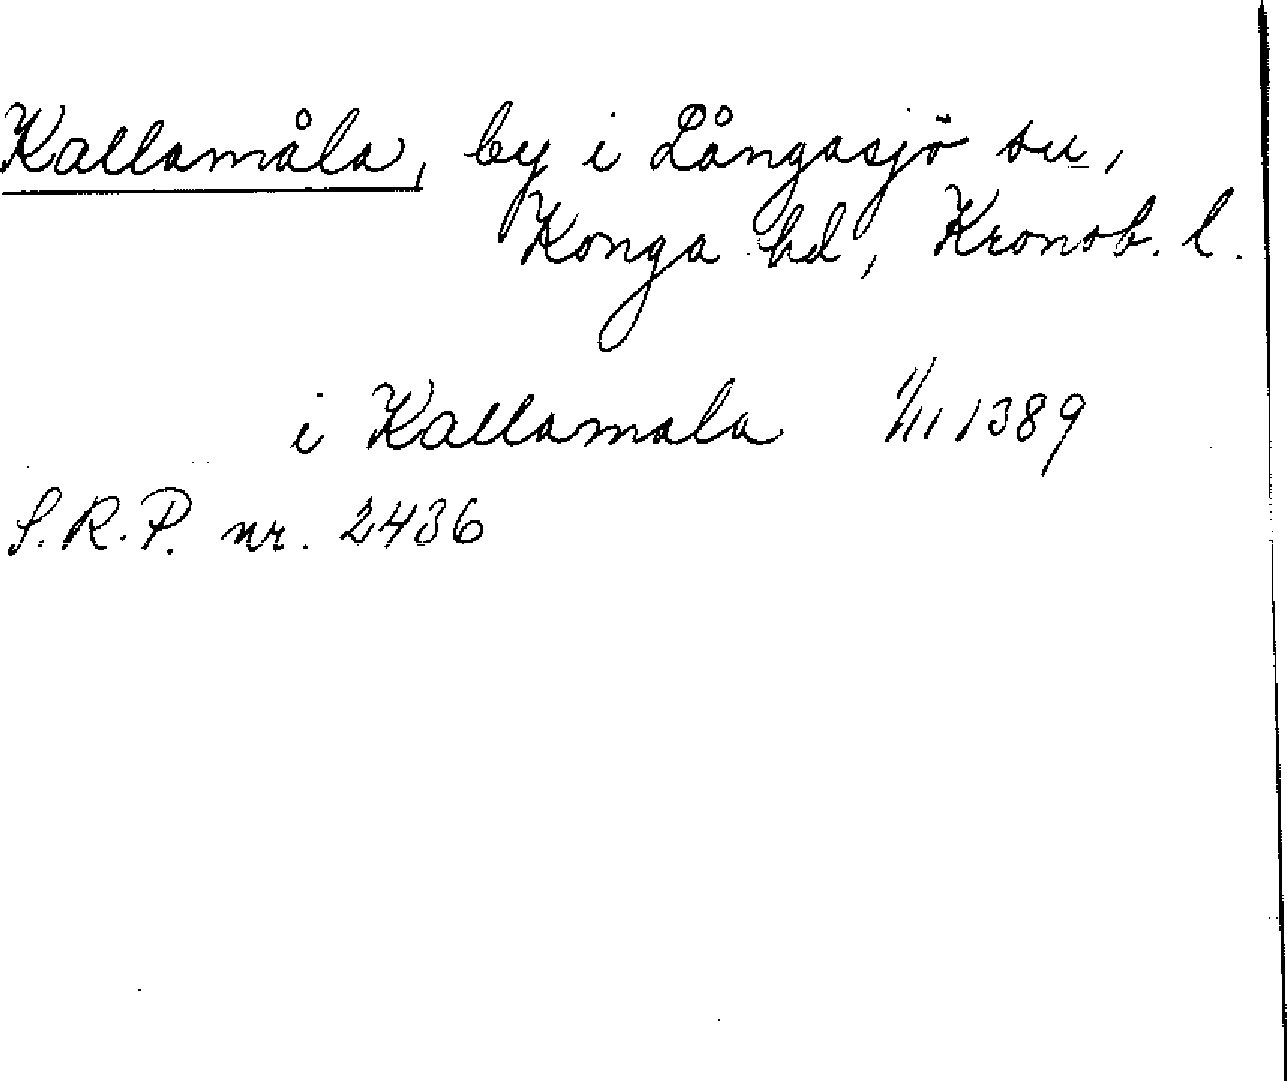 Kallamåla, by i Långasjö sn,
Konga hd, Kronob. l.
i Kallamala 1/111 1389
S.R.P. nr. 2436